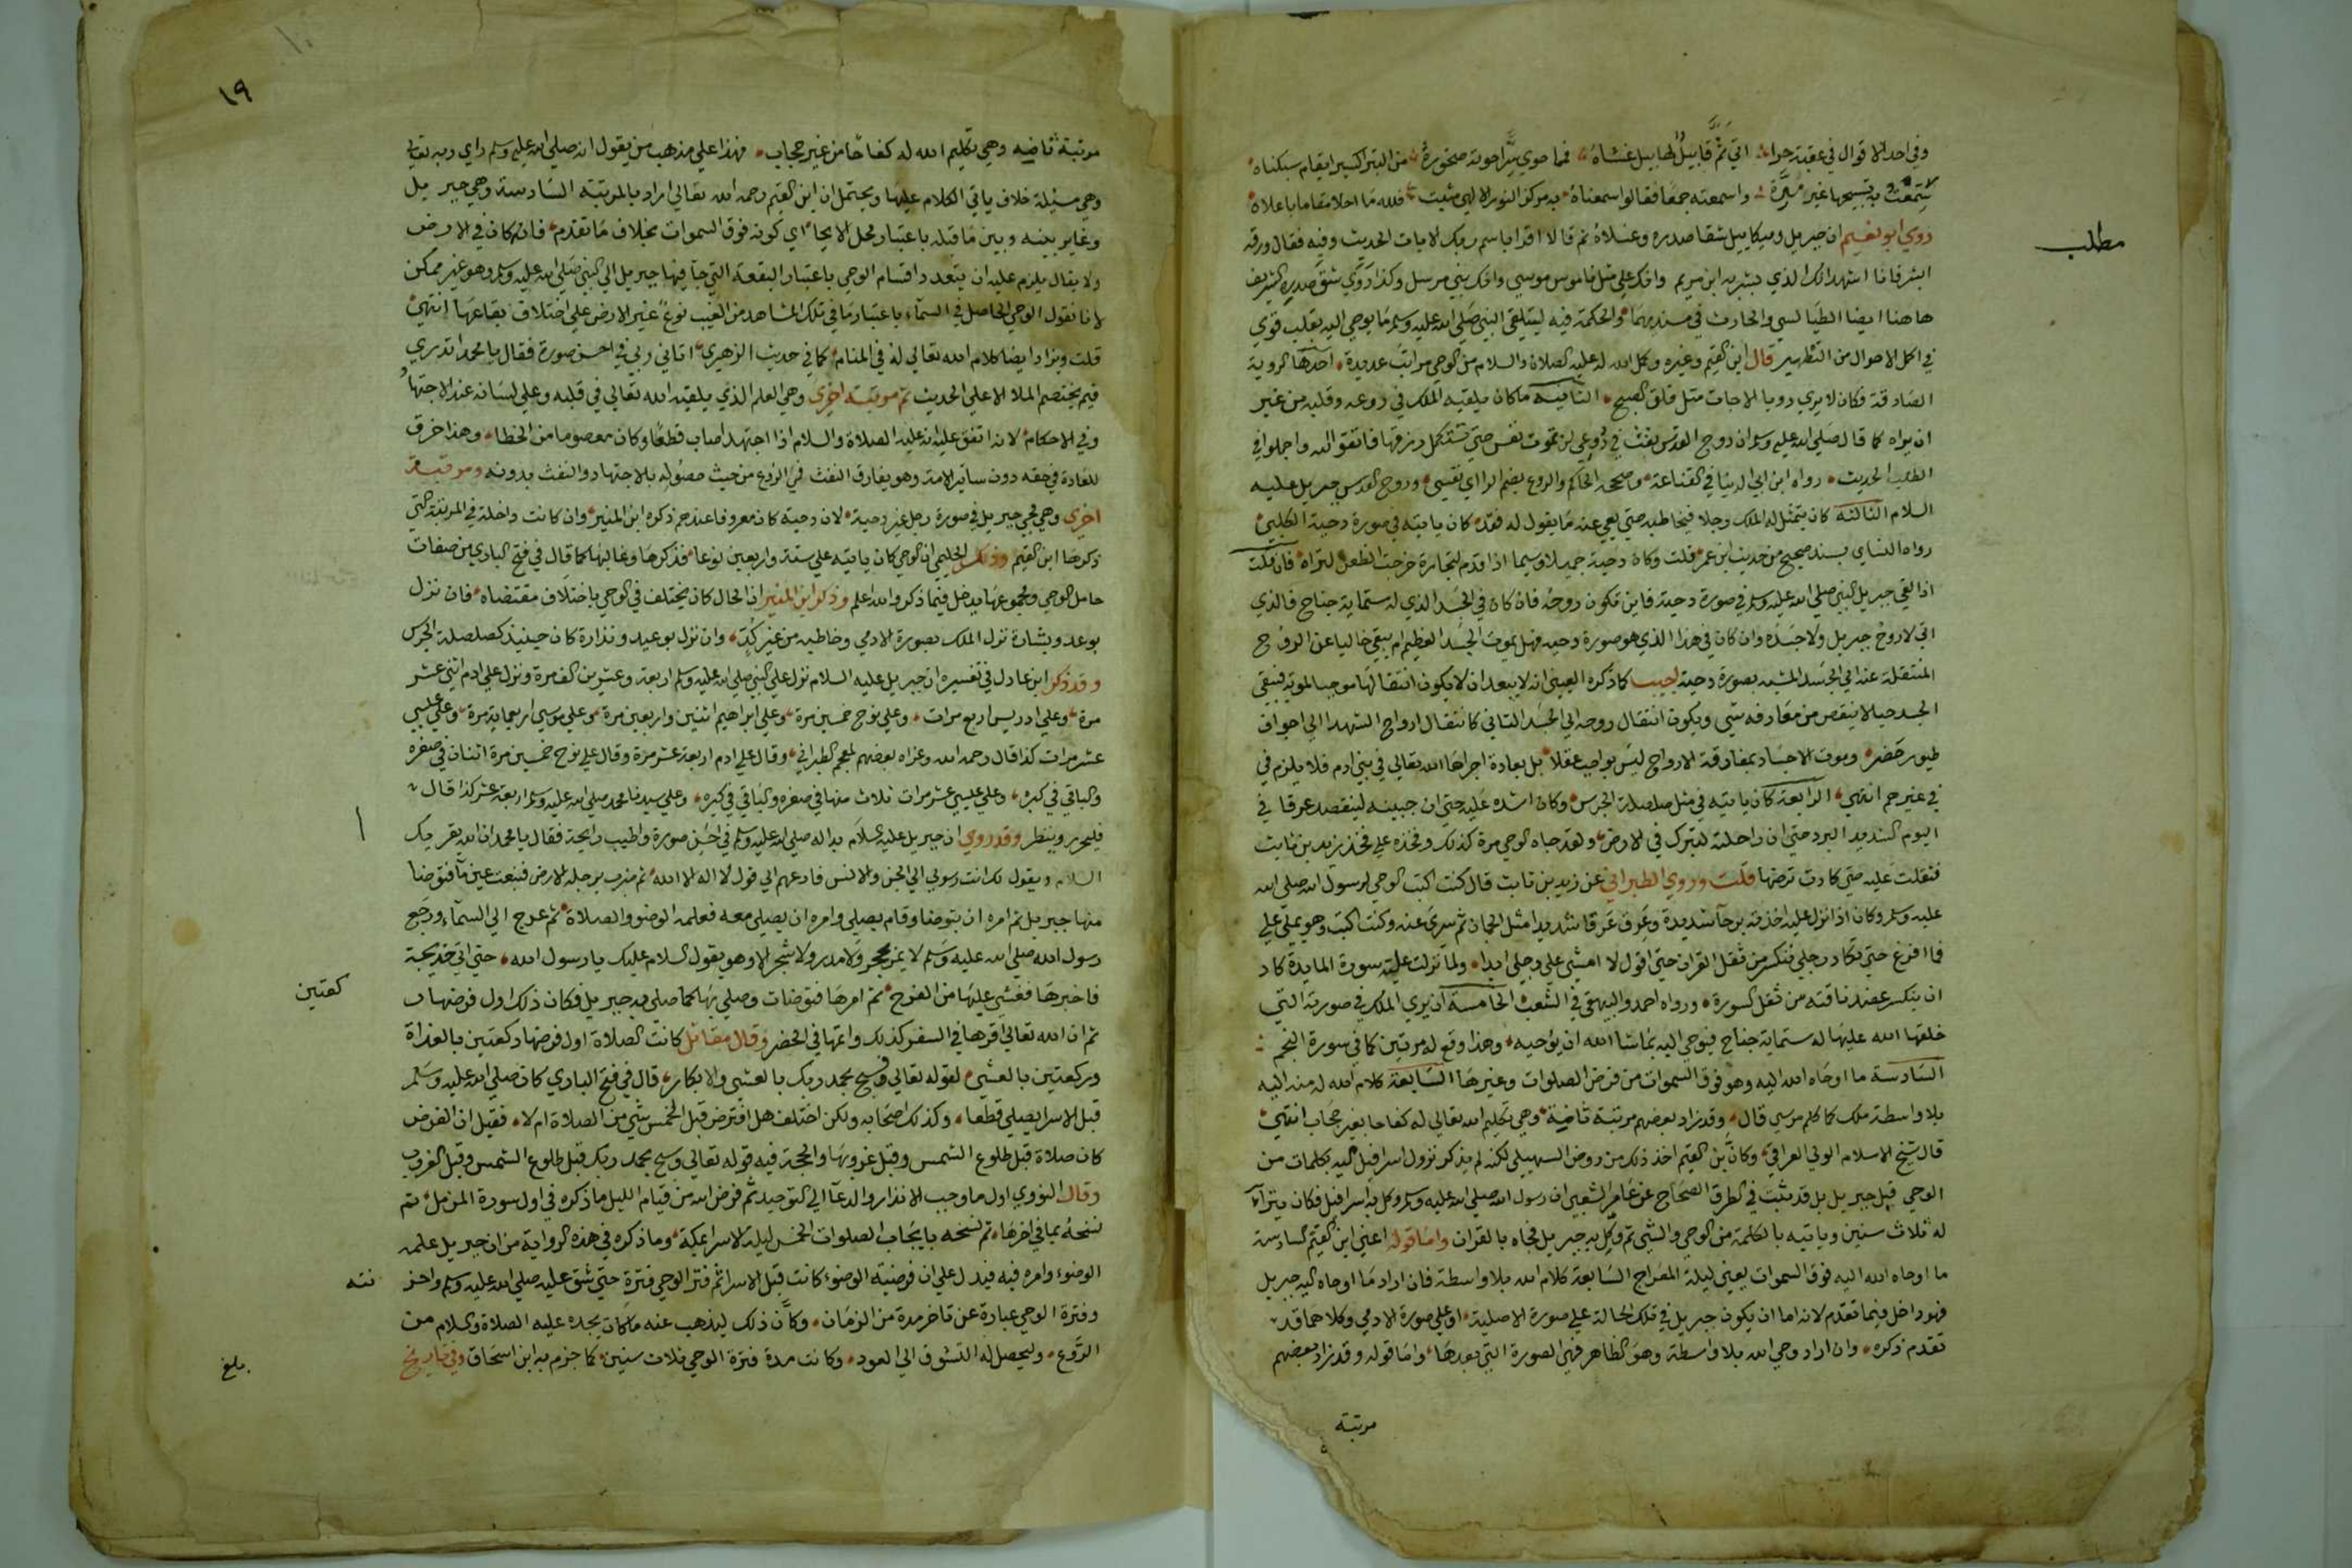 وفي احد الاقوال في عقبة حراء اتي ثم قابيل لهابيل غشاه فما حوي سرا حوته صخوره من التبر اكسيرا يقام سكناه
سمعت به تسبيحها غير مرة واسمعته جمعا فقالوا سمعناه به مركز النور الالهي مثبت فلله ما احلا مقاما باعلاه
روي ابو نعيم ان جبريل وميكاييل شقا صدره وغسلاه ثم قالا اقرا باسم ربك الايات الحديث وفيه فقال ورقه
مطلب
ابشر فانا اشهد انك الذي بشر به ابن مريم وانك علي مثل ناموس موسي وانك نبي مرسل وكذا روي شق صدره الشريف
هاهنا ايضا الطيالسي والحارث في مسنديهما والحكمة فيه ليتلقي النبي صلي الله عليه وسلم ما يوحي اليه بقلب قوي
في اكمل الاحوال من التطهير قال ابن القيم وغيره وكمل الله له عليه الصلاة والسلام من الوحي مراتب عديدة احدها الروية
الصادقة فكان لا يري رويا الا جات مثل فلق الصبح الثانية ما كان يلقيه الملك في روعه وقلبه من غير
ان يراه كما قال صلي الله عليه وسلم ان روح القدس نفث في روعي لن تموت نفس حتي تستكمل رزقها فاتقوا الله واجملوا في
الطلب الحديث رواه ابن ابي الدنيا في القناعة وصححه الحاكم والروع بضم الرا اي نفسي وروح القدس جبريل عليه
السلام الثالثة كان يتمثل له الملك رجلا فيخاطبه حتي يعي عنه ما يقول له فقد كان ياتيه في صورة دحية الكلبي
رواه النساي بسند صحيح من حديث ابن عمر قلت وكان دحية جميلا وسيما اذا قدم لتجارة خرجت الظعن لتراه فان قلت
اذا لقي جبريل النبي صلي الله عليه وسلم في صورة دحية فاين تكون روحه فان كان في الجسد الذي له ستماية جناح فالذي
اتي لا روح جبريل ولا جسده وان كان في هذا الذي هو صورة دحيه فهل يموت الجسد العظيم ام يبقي خاليا عن الروح
المنتقلة عنه الي الجسد المشبه بصورة دحية اجيب كما ذكره العيني انه لا يبعد ان لا يكون انتقالها موجبا لموته فيبقي
الجسد حيا لا ينقص من معارفه شي ويكون انتقال روحه الي الجسد الثاني كانتقال ارواح الشهدا الي اجواف
طيور خضر وموت الاجساد بمفارقة الارواح ليس بواجب عقلا بل بعادة اجراها الله تعالي في بني ادم فلا يلزم في
في غيرهم انتهي الرابعة كان ياتيه في مثل صلصلة الجرس وكان اشده عليه حتي ان جبينه لينفصد عرقا في
اليوم الشديد البرد حتي ان راحلته لتبرك في الارض ولقد جاه الوحي مرة كذلك وفخذه علي فخذ زيد بن ثابت
فثقلت عليه حتي كادت ترضها قلت وروي الطبراني عن زيد بن ثابت قال كنت اكتب الوحي لرسول الله صلي الله
عليه وسلم وكان اذا نزل عليه اخذته برحا شديدة وعرق عرقا شديدا مثل الجمان ثم سري عنه وكنت اكتب وهو يملي علي
فما افرغ حتي تكاد رجلي تنكسر من ثقل القران حتي اقول لا امشي علي رجلي ابدا ولما نزلت عليه سورة المايدة كاد
ان ينكسر عضد ناقته من ثقل السورة ورواه احمد والبيهقي في الشعب الخامسة ان يري الملك في صورته التي
خلقها الله عليها له ستماية جناح فيوحي اليه ما شا الله ان يوحيه وهذا وقع له مرتين كما في سورة النجم
السادسة ما اوحاه الله اليه وهو فوق السموات من فرض الصلوات وغيرها السابعة كلام الله له منه اليه
بلا واسطة ملك كما كلم موسي قال وقد زاد بعضهم مرتبة ثامنة وهي تكليم الله تعالي له كفاحا بغير حجاب انتهي
قال شيخ الاسلام الولي العراقي وكان ابن القيم اخذ ذلك من روض السهيلي لكنه لم يذكر نزول اسرافيل اليه بكلمات من
الوحي قبل جبريل بل قد ثبت في الطرق الصحاح عن عامر الشعبي ان رسول الله صلي الله عليه وسلم وكل به اسرافيل فكان يتراا
له ثلاث سنين وياتيه بالكلمة من الوحي والشي ثم وكل به جبريل فجاه بالقران واما قوله اعني ابن القيم السادسة
ما اوحاه الله اليه فوق السموات يعني ليلة المعراج السابعة كلام الله بلا واسطة فان اراد ما اوحاه اليه جبريل
فهو داخل فيما تقدم لانه اما ان يكون جبريل في تلك الحالة علي صورة الاصلية او علي صورة الادمي وكلاهما قد
تقدم ذكره وان اراد وحي الله بلا واسطة وهو الظاهر فهي الصورة التي بعدها واما قوله وقد زاد بعضهم
مرتبة
١٩
مرتبة ثامنه وهي تكليم الله له كفاحا من غير حجاب فهذا علي مذهب من يقول انه صلي الله عليه وسلم راي ربه تعالي
وهي مسئلة خلاف ياتي الكلام عليها ويحتمل ان ابن القيم رحمه الله تعالي اراد بالمرتبة السادسة وحي جبريل
وغاير بينه وبين ما قبله باعتبار محل الايحا اي كونه فوق السموات بخلاف ما تقدم فانه كان في الارض
ولا يقال يلزم عليه ان يتعدد اقسام الوحي باعتبار البقعة التي جا فيها جبريل الي النبي صلي الله عليه وسلم وهو غير ممكن
لانا نقول الوحي الحاصل في السماء باعتبار ما في تلك المشاهد من الغيب نوع غير الارض علي اختلاف بقاعها انتهي
قلت ويزاد ايضا كلام الله تعالي له في المنام كما في حديث الزهري اتاني ربي في احسن صورة فقال يا محمد اتدري
فيم يختصم الملا الاعلي الحديث ثم مرتبة اخري وهي العلم الذي يلقيه الله تعالي في قلبه وعلي لسانه عند الاجتهاد
وفي الاحكام لانه اتفق علي انه عليه الصلاة والسلام اذا اجتهد اصاب قطعا وكان معصوما من الخطا وهذا خرق
للعادة في حقه دون ساير الامة وهو يفارق النفث في الروع من حيث حصوله بالاجتهاد والنفث بدونه ومرتبة
اخري وهي مجي جبريل في صورة رجل غير دحية لان دحية كان معروفا عندهم ذكره ابن المنير وان كانت داخلة في المرتبة التي
ذكرها ابن القيم وذكر الحليمي ان الوحي كان ياتيه علي ستة واربعين نوعا فذكرها وغالبها كما قال في فتح الباري من صفات
حامل الوحي ومجموعها يدخل فيما ذكر والله اعلم وذكر ابن المنير ان الحال كان يختلف في الوحي باختلاف مقتضاه فان نزل
بوعد وبشارة نزل الملك بصورة الادمي وخاطبه من غير كد وان نزل بوعيد ونذارة كان حينيذ كصلصلة الجرس
وقد ذكر ابن عادل في تفسيره ان جبريل عليه السلام نزل علي النبي صلي الله عليه وسلم اربعة وعشرين الف مرة ونزل علي ادم اثني عشر
مرة وعلي ادريس اربع مرات وعلي نوح خمسين مرة وعلي ابراهيم اثنين واربعين مرة وعلي موسي اربعماية مرة وعلي عيسي
عشر مرات كذا قال رحمه الله وعزاه بعضهم لمعجم الطبراني وقال علي ادم اربعة عشر مرة وقال علي نوح خمسين مرة اثنان في صغره
والباقي في كبره وعلي عيسي عشر مرات ثلاث منها في صغره والباقي في كبره وعلي سيدنا محمد صلي الله عليه وسلم اربعة عشر كذا قال
فليحرر وينظر وقد روي ان جبريل عليه السلام بدا له صلي الله عليه وسلم في احسن صورة واطيب رايحة فقال يا محمد ان الله يقريك
السلام ويقول لك انت رسولي الي الجن والانس فادعهم الي قول لا اله الا الله ثم ضرب برجله الارض فنبعت عين ما فتوضا
منها جبريل ثم امره ان يتوضا وقام يصلي وامره ان يصلي معه فعلمه الوضو والصلاة ثم عرج الي السماء ورجع
رسول الله صلي الله عليه وسلم لا يمر بحجر ولا مدر ولا شجر الا وهو يقول السلام عليك يا رسول الله حتي اتي خديجة
فاخبرها فغشي عليها من الفرح ثم امرها فتوضات وصلي بها كما صلي به جبريل فكان ذلك اول فرضها ر
كعتين
ثم ان الله تعالي اقرها في السفر كذلك واتمها في الحضر وقال مقاتل كانت الصلاة اول فرضها ركعتين بالغداة
وركعتين بالعشي لقوله تعالي وسبح بحمد ربك بالعشي والابكار قال في فتح الباري كان صلي الله عليه وسلم
قبل الاسرا يصلي قطعا وكذلك اصحابه ولكن اختلف هل افترض قبل الخمس شي من الصلاة ام لا فقيل ان الفرض
كان صلاة قبل طلوع الشمس وقبل غروبها والحجة فيه قوله تعالي وسبح بحمد ربك قبل طلوع الشمس وقبل الغروب
وقال النووي اول ما وجب الانذار والدعا الي التوحيد ثم فرض الله من قيام الليل ما ذكره في اول سورة المزمل ثم
نسخه بما في اخرها ثم نسخه بايجاب الصلوات الخمس ليلة الاسرا بمكة وما ذكره في هذه الرواية من ان جبريل علمه
الوضوء وامره فيه فيدل علي ان فرضية الوضوء كانت قبل الاسرا ثم فتر الوحي فترة حتي شق عليه صلي الله عليه وسلم واحز
نته
وفترة الوحي عبارة عن تاخر مدة من الزمان وكان ذلك ليذهب عنه ما كان يجده عليه الصلاة والسلام من
الروع وليحصل له التشوف الي العود وكانت مدة فترة الوحي ثلاث سنين كما جزم به ابن اسحاق وفي تاريخ
بلغ